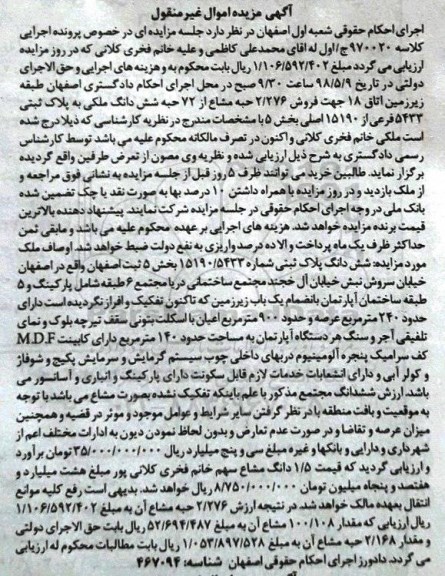 آگهی مزیده اموال غیر منقول
اجرای احکام حقوقی شعبه اول اصفهان در نظر دارد جلسه مزایده ای در خصوص پرونده اجرایی
کلاسه ۹۷۰۰۲۰ ج/ اول له آقای محمدعلی کاظمی و علیه خانم فخری کلانی که در روز مزایده
ارزیابی می گردد مبلغ ۱/۱۰۶/۵۹۲/۴۰۲ ریال بابت محکوم به و هزینه های اجرایی و حق الاجرای
دولتی در تاریخ ۹۸/۵/۹ ساعت ۹/۳۰ صبح در محل اجرای احکام دادگستری اصفهان طبقه
زیرزمین اتاق ۱۸ جهت فروش ۲/۲۷۶ حبه مشاع از ۷۲ حبه شش دانگ ملکی به پلاک ثبتی
۵۴۳۳ فرعی از ۱۵۱۹۰ اصلی بخش ۵ با مشخصات مندرج در نظریه کارشناسی که ذیلا درج شده
است ملکی خانم فخری کلانی و اکنون در تصرف مالکانه محکوم علیه می باشد توسط کارشناس
رسمی دادگستری به شرح ذیل ارزیابی شده و نظریه وی مصون از تعرض طرفین واقع گردیده
برگزار نماید. طالبین خرید می توانند ظرف ۵ روز قبل از جلسه مزایده به نشانی فوق مراجعه و
از ملک بازدید و در روز مزایده با همراه داشتن ۱۰ درصد بها به صورت نقد یا چک تضمین شده
بانک ملی در وجه اجرای احکام حقوقی در جلسه مزایده شرکت نمایند. پیشنهاد دهنده بالاترین
قیمت برنده مزایده خواهد شد. هزینه های اجرایی بر عهده محکوم علیه می باشد و مابقی ثمن
حداکثر ظرف یک ماه پرداخت و الا ده درصد واریزی به نفع دولت ضبط خواهد شد. اوصاف ملک
مورد مزایده: شش دانگ پلاک ثبتی شماره ۱۵۱۹۰/۵۴۳۳ بخش ۵ ثبت اصفهان واقع در اصفهان
خیابان سروش نبش خیابان آل خجند مجتمع ساختمانی در یا مجتمع ۶ طبقه شامل پارکینگ و ۵
طبقه ساختمان آپارتمان بانضمام یک باب زیرزمین که تاکنون تفکیک و افراز نگردیده است دارای
حدود ۲۴۰ مترمربع عرصه و حدود ۹۰۰ مترمربع اعیان با اسکلت بتونی سقف تیرچه بلوک و نمای
تلفیقی آجر و سنگ هر دستگاه آپارتمان به مساحت حدود ۱۴۰ مترمربع دارای کابینت M.D.F
کف سرامیک پنجره آلومینیوم دربهای داخلی چوب سیستم گرمایش و سرمایش پکیج و شوفاژ
و کولر آبی و دارای انشعابات خدمات لازم قابل سکونت دارای پارکینگ و انباری و آسانسور می
باشد. ارزش ششدانگ مجتمع مذکور با علم باینکه تفکیک نشده بصورت مشاع می باشد با توجه
به موقعیت و بافت منطقه با در نظر گرفتن سایر شرایط و عوامل موجود و موثر در قضیه و همچنین
میزان عرصه و تقاضا و در صورت عدم تعارض و بدون لحاظ نمودن دیون به ادارات مختلف اعم از
شهرداری و دارایی و بانکها و غیره مبلغ سی و پنج میلیارد ریال ۳۵/۰۰۰/۰۰۰/۰۰۰ تومان برآورد
و ارزیابی گردید که قیمت ۱/۵ دانگ مشاع سهم خانم فخری کلانی پور مبلغ هشت میلیارد و
هفتصد و پنجاه میلیون تومان ۸/۷۵۰/۰۰۰/۰۰۰ ریال خواهد شد. بدیهی است رفع کلیه موانع
انتقال بعهده مالک خواهد شد. در نتیجه ارزش ۲/۲۷۶ حبه مشاع آن به مبلغ ۱/۱۰۶/۵۹۲/۴۰۲
ریال ارزیابی که مقدار ۱۰۰/۱۰۸ مشاع آن به مبلغ ۵۲/۶۹۴/۴۸۷ ریال بابت حق الاجرای دولتی
و مقدار ۲/۱۶۸ حبه مشاع آن به مبلغ ۱/۰۵۳/۸۹۷/۵۲۸ ریال بابت مطالبات محکوم له ارزیابی
می گردد. دادورز اجرای احکام حقوقی اصفهان شناسه: ۴۶۷۰۹۴